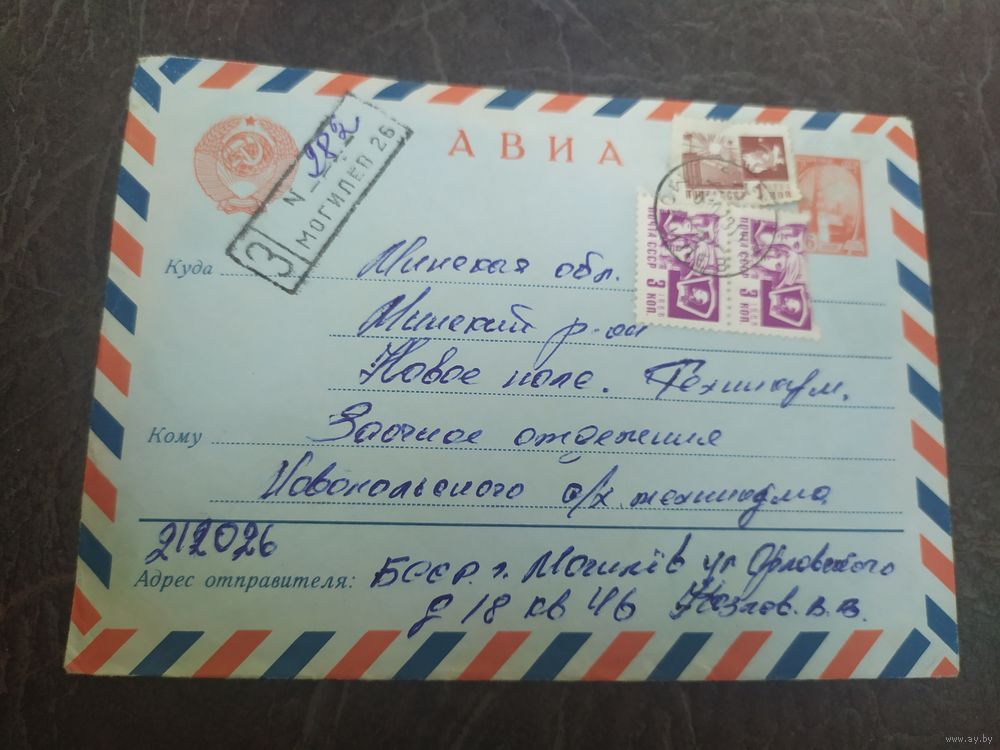 АВИА
N 282
З МОГИЛЕВ 26
ПОЧТА СССР 1966 3 КОП.
ПОЧТА СССР 1966 3 КОП.
Куда Минская обл.
Минский р-он
Новое поле. Техникум.
Кому Заочное отделения
Новопольского с/х техникума
212026
Адрес отправителя: БССР. г. Могилёв ул Орловского
д 18 кв 46 Козлов. В. В.
www.ay.by